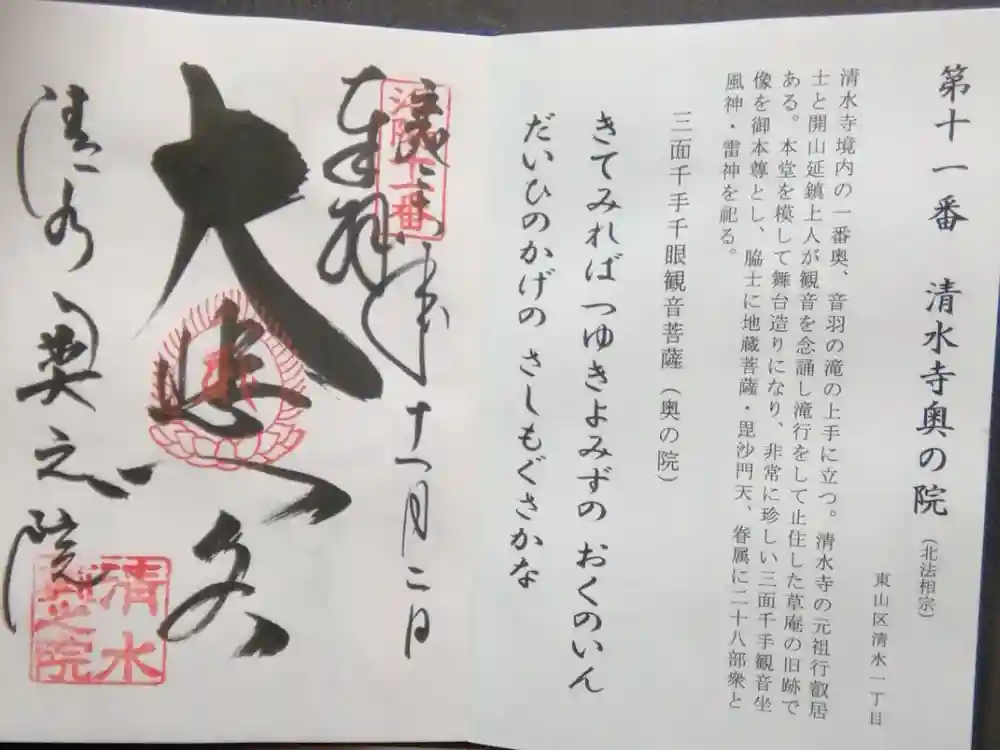 第十一番　清水寺奥の院（北法相宗）
東山区清水一丁目
清水寺境内の一番奥、音羽の滝の上手に立つ。清水寺の元祖行叡居
士と開山延鎮上人が観音を念誦し滝行をして止住した草庵の旧跡で
ある。本堂を模して舞台造りになり、非常に珍しい三面千手観音坐
像を御本尊とし、脇士に地蔵菩薩・毘沙門天、眷属に二十八部衆と
風神・雷神を祀る。
三面千手千眼観音菩薩（奥の院）
きてみればつゆきよみずの おくのいん
だいひのかげの さしもぐさかな
洛陽十一番
奉拝
十一月二日
大悲閣
清水奥之院
清水
奥之院